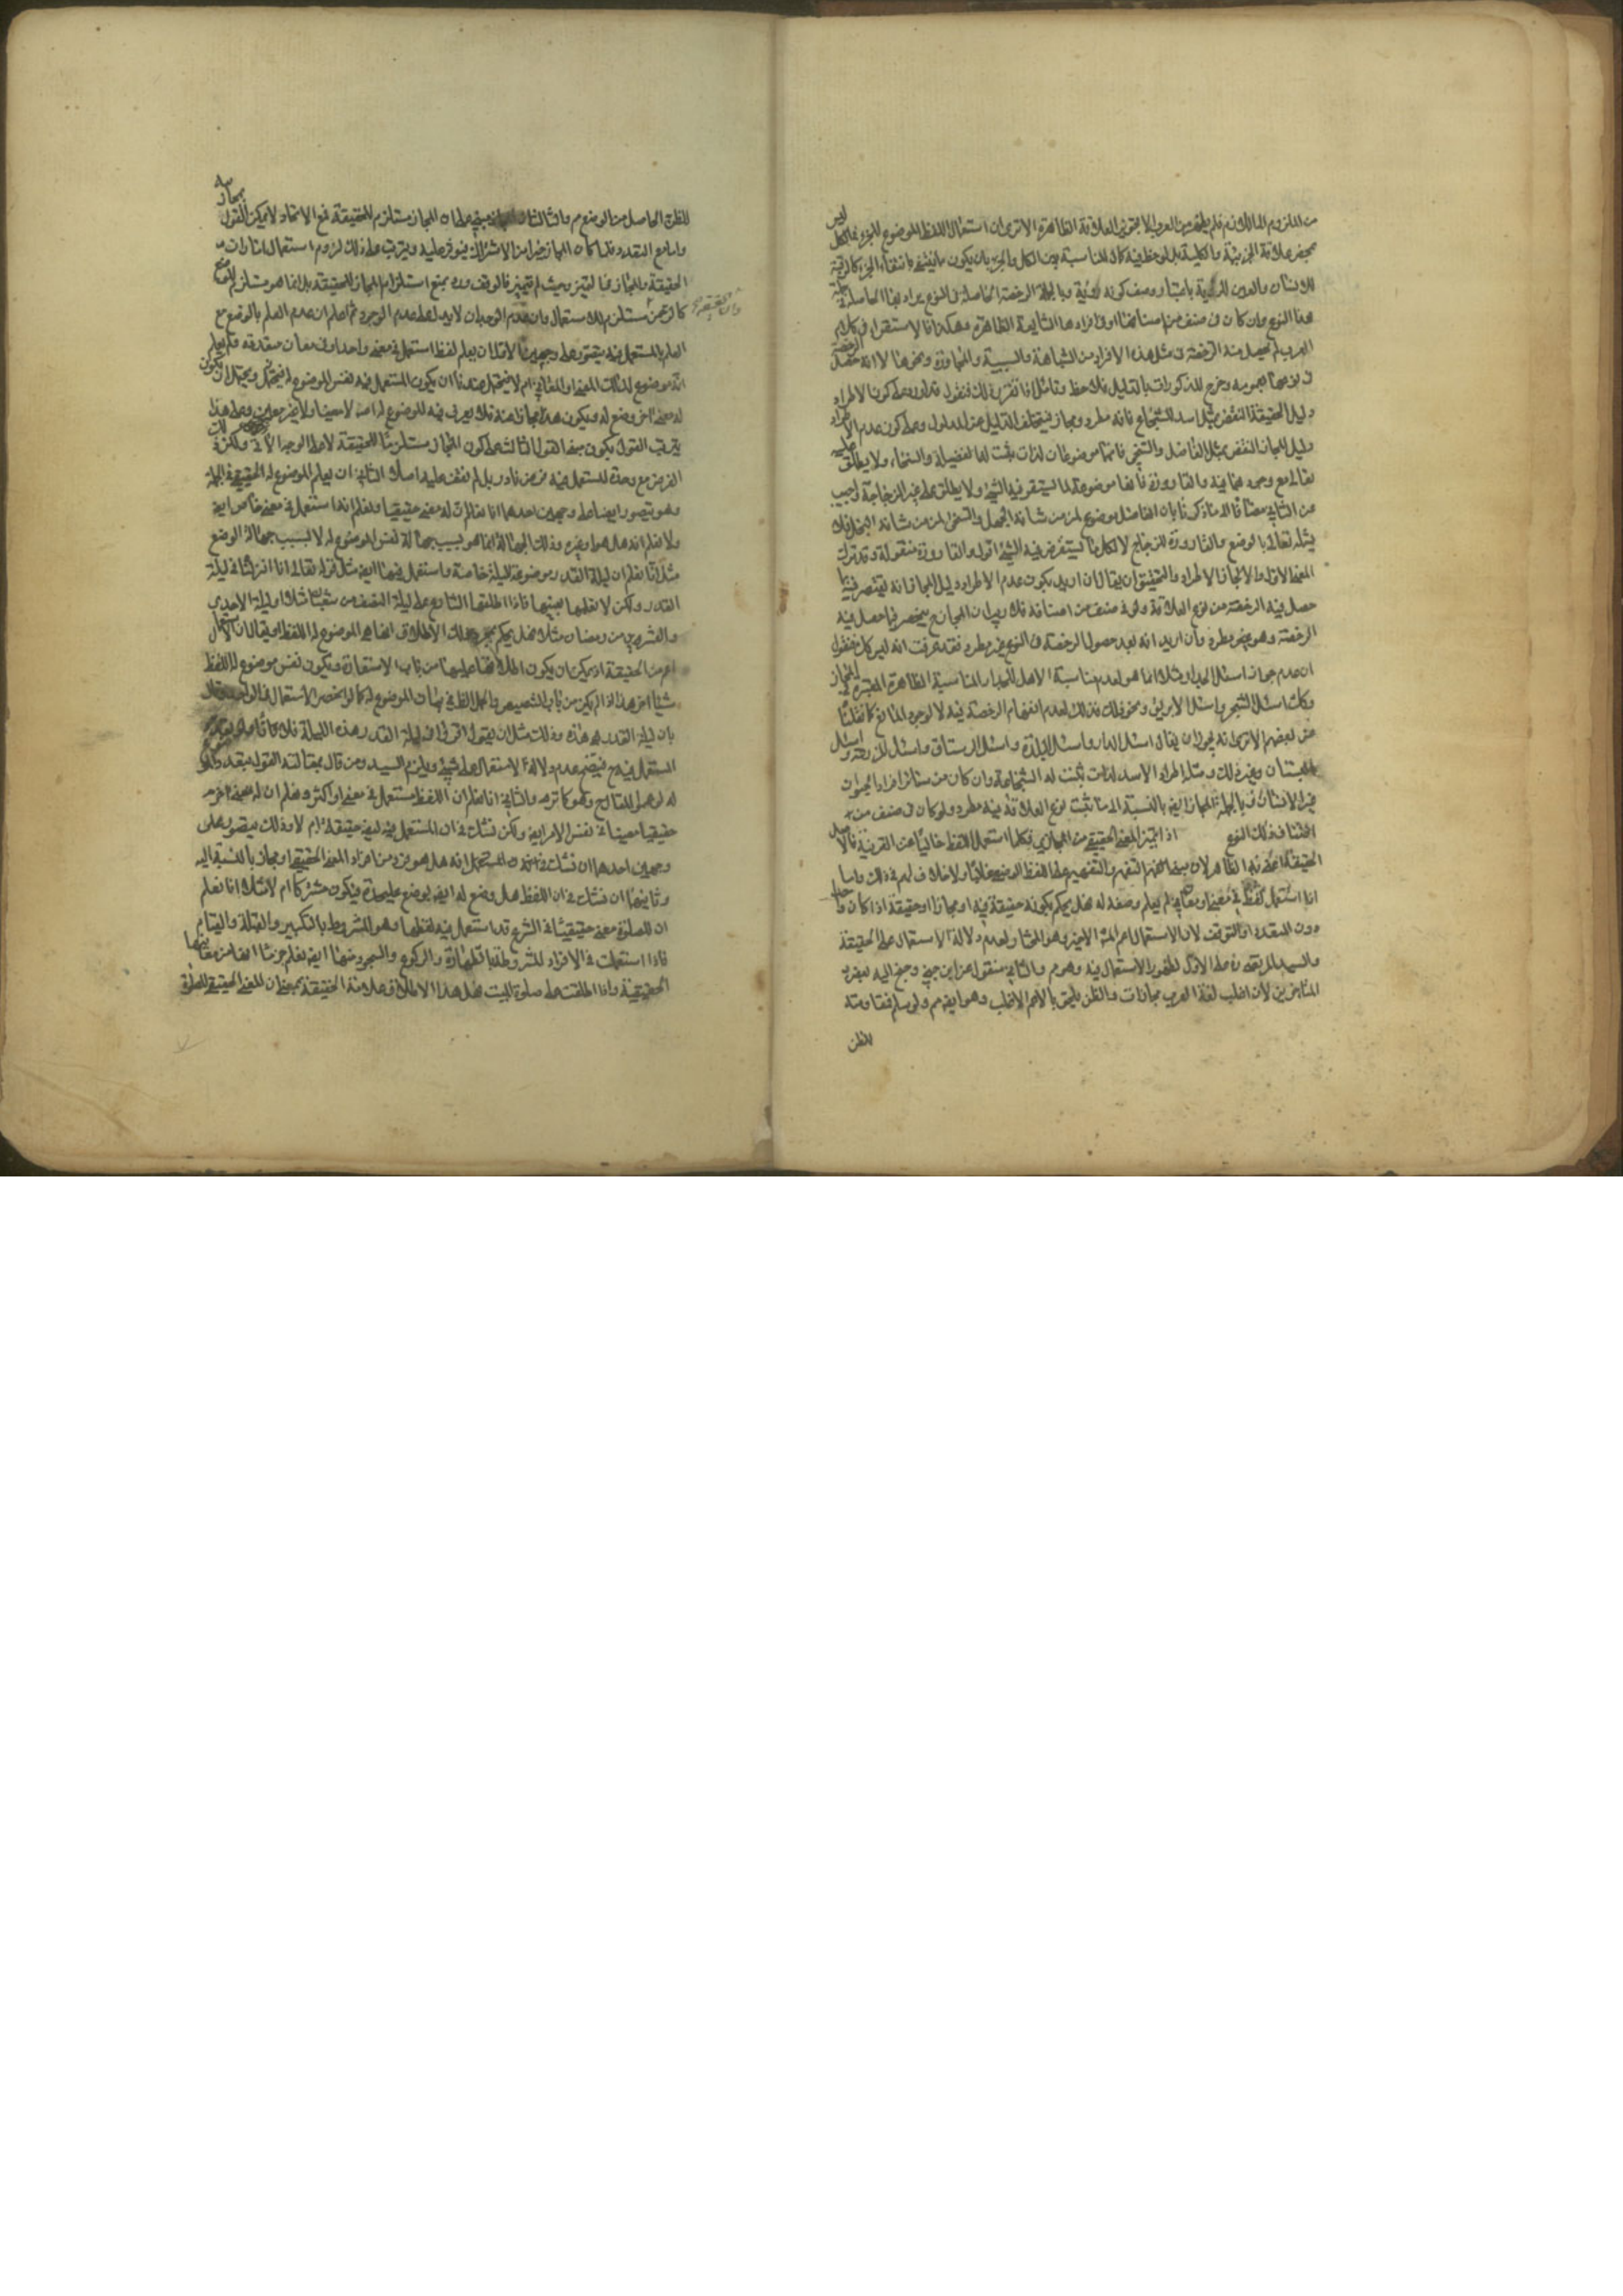 من الملزوم الى اللازم فلم يظهر من العرب الا تجويز العلاقة الظاهرة الا ترى ان استعمال اللفظ الموضوع للجزء في الكل ليس
بمحض علاقة الجزئية والكلية بل لوحظ فيه كمال المناسبة بين الكل والجزء بان يكون مما ينتفي بانتفاء الجزء كالرقبة
للانسان والعين للربيئة باعتبار وصف كونه ربيئة وبالجملة الرخصة الحاصلة في النوع يراد بها الحاصلة في جملة
هذا النوع وان كان في صنف من اصنافها او في افرادها الشايعة الظاهرة وهكذا فالاستقراء في كلام
العرب لم يحصل منه الرخصة في مثل هذه الافراد من المشابهة والسببية والمجاورة ونحوها لا انه حصل الرخصة
في نوعها بعمومه وخرج المذكورات بالدليل فلاحظ وتامل اذا تقرر ذلك فنقول قد اورد على كون الاطراد
دليل الحقيقة النقض بمثل اسد للشجاع فانه مطرد ومجاز فيتخلف الدليل عن المدلول وعلى كون عدم الاطراد
دليل المجاز النقض بمثل الفاضل والسخي فانهما موضوعان لذات يثبت لها الفضيلة والسخاء ولا يطلق عليه
تعالى مع وجودهما فيه والقارورة فانها موضوعة لما يستقر فيه الشيء ولا يطلق على غير الزجاجة واجيب
عن الثاني مضافا الى ما ذكرنا بان الفاضل موضوع لمن من شانه الجهل والسخي لمن من شانه البخل فلا
يشمله تعالى بالوضع والقارورة للزجاج لا لكل ما يستقر فيه الشيء اقول والقارورة منقولة وقد ترك
المعنى الاول والا لجاز الاطراد والتحقيق ان يقال ان اريد بكون عدم الاطراد دليل المجاز انه يقتصر فيما
حصل فيه الرخصة من نوع العلاقة ولو في صنف من اصنافه فلا ريب ان المجاز ح ينحصر فيما حصل فيه
الرخصة وهو غير مطرد وان اريد انه بعد حصول الرخصة في النوع غير مطرد فقد عرفت انه ليس كك فنقول
ان عدم جواز اسئل الجدار مثلا انما هو لعدم مناسبة الاهل للجدار المناسبة الظاهرة المعتبرة في المجاز
وكك اسئل الشجر واسئل الابريق ونحو ذلك فذلك لعدم انفهام الرخصة فيه لا لوجود المانع كما نقلنا
عن بعضهم الا ترى انه يجوز ان يقال اسئل الدار واسئل البلدة واسئل الرستاق واسئل المزرعة واسئل
البستان وغير ذلك ومثله اطراد الاسد لذات يثبت له الشجاعة وان كان من سائر افراد الحيوان
غير الانسان فبالجملة المجاز ايضا بالنسبة الى ما ثبت نوع العلاقة فيه مطرد ولو كان في صنف من
اصناف ذلك النوع اذا تميز المعنى الحقيقي من المجازي فكلما استعمل اللفظ خاليا عن القرينة فالاصل
الحقيقة اعني به الظاهر لان مبنى التفهم والتفهيم على اللفظ الوضعي غالبا ولا خلاف لهم في ذلك واما
اذا استعمل لفظ في معنى او معان لم يعلم وضعه له فهل يحكم بكونه حقيقة فيه او مجازا او حقيقة اذا كان واحدا
دون المتعدد او التوقف لان الاستعمال اعم المشهور الاخير وهو المختار لعدم دلالة الاستعمال على الحقيقة
والسيد المرتضى ره على الاول لظهور الاستعمال فيه وهو مم والثاني منقول عن ابن جني وجنح اليه بعض
المتاخرين لان اغلب لغة العرب مجازات والظن يلحق بالاعم الاغلب وهو ايضا مم ولو سلم فمقاومته
للظن
للظن الحاصل من الوضع مم والثالث مبني على ان المجاز مستلزم للحقيقة فمع الاتحاد لا يمكن القول بمجازيته
واما مع التعدد فلما كان المجاز خيرا من الاشتراك فيؤثر عليه ويترتب على ذلك لزوم استعمال امارات
الحقيقة والمجاز فيما لم يتميز وحيث لم يتميز فالوقف وفيه منع استلزام المجاز للحقيقة بل انما هو مستلزم للوضع
كالرحمن مستلزم للاستعمال وان عدم الوجدان لا يدل على عدم الوجود ثم اعلم ان عدم العلم بالوضع مع
العلم بالمستعمل فيه يتصور على وجهين الاول ان يعلم لفظ استعمل في معنى واحد او في معان متعددة ولم يعلم
انه موضوع لذلك المعنى او المعاني ام لا فيحتمل عندنا ان يكون المستعمل فيه نفس الموضوع له فيحتمل ويحتمل ان يكون
له معنى اخر وضع له ويكون هذا مجازا عنه فلا يعرف فيه للموضوع له اصلا لا معينا ولا غير معين وعلى هذا
يترتب القول بكون مبنى القول الثالث على كون المجاز مستلزما للحقيقة لا على الوجه الاتي ولكن
الفرض مع وحدة المستعمل فيه فرض نادر بل لم نقف عليه اصلا الثاني ان يعلم الموضوع له الحقيقي في الجملة
وهو يتصور ايضا على وجهين احدهما انا نعلم ان له معنى حقيقيا ونعلم انه استعمل في معنى خاص ايضا
ولا نعلم انه هل هو او غيره وذلك الجهالة انما هو بسبب جهالة نفس الموضوع له لا بسبب جهالة الوضع
مثلا انا نعلم ان ليلة القدر موضوعة لليلة خاصة واستعمل فيها ايضا مثل قوله تعالى انا انزلناه في ليلة
القدر ولكن لا نعلمها بعينها فاذا اطلقها الشارع على ليلة النصف من شعبان مثلا او ليلة الاحدى
والعشرين من رمضان مثلا فهل يحكم بمجرد ذلك الاطلاق انها هي الموضوع له اللفظ او يقال ان الاستعمال
اعم من الحقيقة اذ يمكن ان يكون اطلاقها عليها من باب الاستعارة ويكون نفس موضوع له اللفظ
شيئا اخر هذا اذا لم يكن من باب التنصيص والحمل الظاهر في بيان الموضوع له كما لو انحصر الاستعمال في الواحد وقال
بان ليلة القدر هي هذه وذلك مثل ان يقول اقرؤا في ليلة القدر هذه الليلة فلانا
المستعمل فيه ح فيتضح عدم دلالة الاستعمال على شيء ويلزم السيد ومن قال بمقالته القول بتعدد الموضوع
له لو حصل التتابع وهو كما ترى والثاني انا نعلم ان اللفظ مستعمل في معنى او اكثر ونعلم ان له معنى اخر
حقيقيا معينا في نفس الامر ايضا ولكن نشك في ان المستعمل فيه ايضا حقيقة ام لا وذلك يتصور على
وجهين احدهما ان نشك في انه هل هو فرد من افراد المعنى الحقيقي او مجاز بالنسبة اليه
وثانيهما ان نشك في ان اللفظ هل وضع له ايضا بوضع عليحدة فيكون مشتركا ام لا مثلا انا نعلم
ان للصلوة معنى حقيقيا في الشرع قد استعمل فيه لفظها وهو المشروط بالتكبير والقبلة والقيام
فاذا استعملت في الافراد المشروطة بالطهارة والركوع والسجود منها ايضا نعلم جزما انها من معانيها
الحقيقية واذا اطلقت على صلوة الميت فهل هذا الاطلاق علامة الحقيقة بمعنى ان المعنى الحقيقي للصلوة